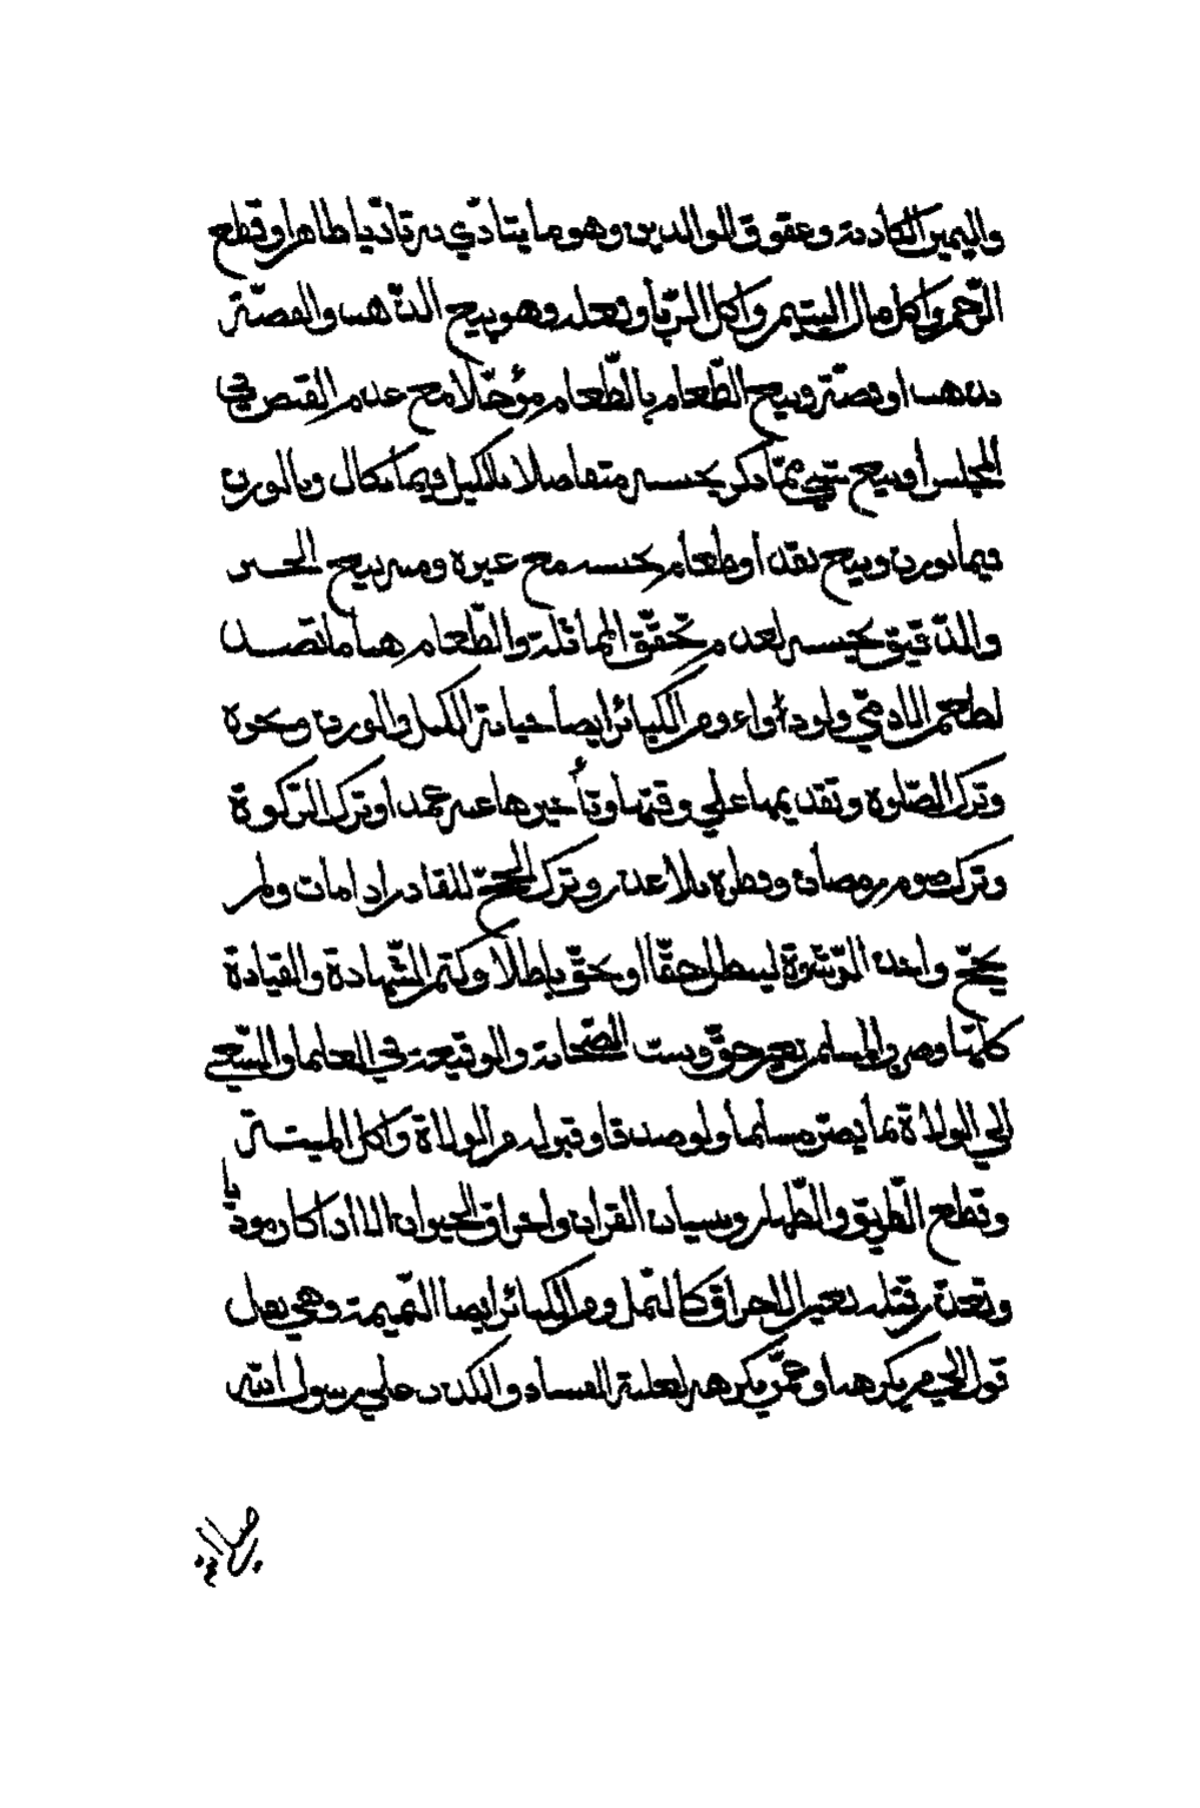 واليمين الكاذبة وعقوق الوالدين وهو ما يتاذّي به تاذّيا ظاهرا وقطع
الرّحم واكل مال اليتيم واكل الرّبا وفعله وهو بيع الذّهب والفضّة
بذهب او فضّة وبيع الطّعام بالطّعام مؤجّلا مع عدم القبض في
المجلس او بيع شيء ممّا ذكر بجنسه متفاضلا بالكيل فيما يكال وبالوزن
فيما يوزن وبيع نقد او طعام بجنسه مع غيره ومنه بيع الخبز
والدّقيق بجنسه لعدم تحقّق المماثلة والطّعام هنا ما يقصد
لطعم الادمي ولو دواء ومن الكبائر ايضا خيانة الكيل والوزن ونحوه
وترك الصّلوة وتقديمها علي وقتها وتأخيرها عنه عمدا وترك الزّكوة
وترك صوم رمضان وفطره بلا عذر وترك الحجّ للقادر اذا مات ولم
يحجّ واخذ الرّشوة ليبطل حقّا او يحقّ باطلا وكتم الشّهادة والقيادة
كلّها وضرب المسلم بغير حقّ وسبّ الصّحابة والوقيعة في العلماء والسّعي
الي الولاة بما يضرّ مسلما ولو صدقا وقبوله من الولاة واكل الميتة
وقطع الطّريق والظّهار ونسيان القران واحراق الحيوان الا اذا كان موذيا
وتعذّر قتله بغير الاحراق كالنّمل ومن الكبائر ايضا النّميمة وهي نقل
قول الي من يكرهه او عمّن يكرهه لغلبة الفساد والكذب علي رسول الله
صلي الله